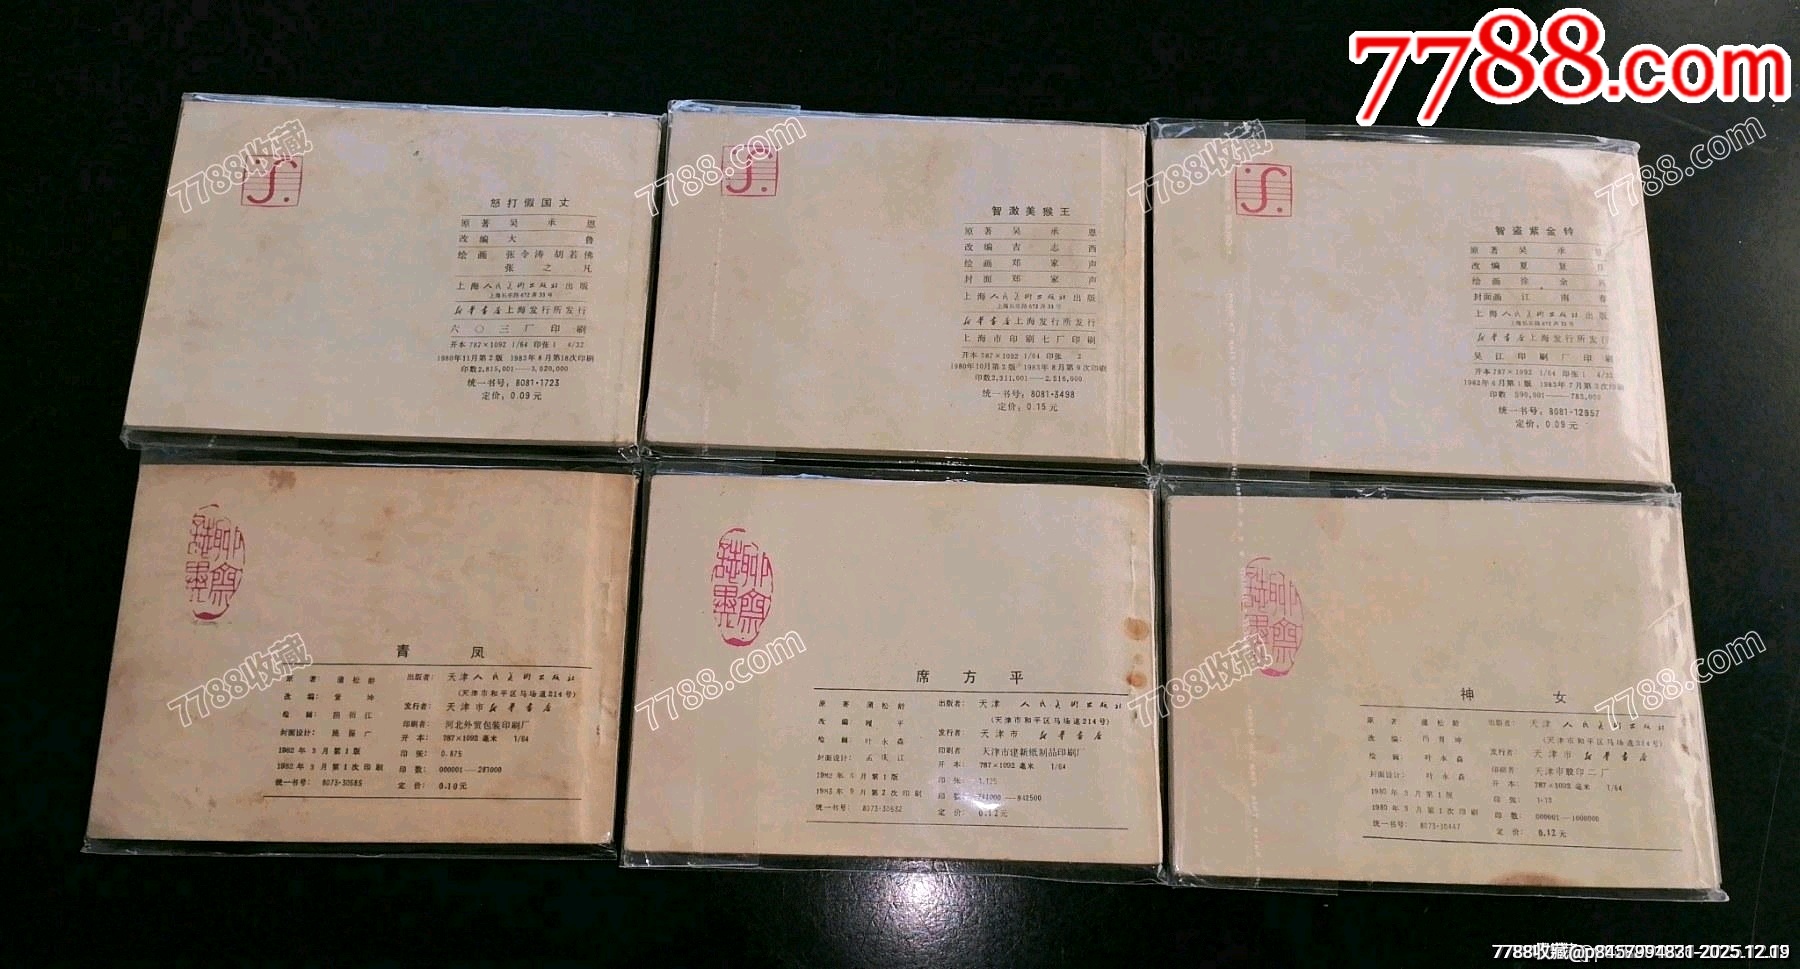 7788.com
怒打假国丈
原著 吴承恩
改编 大鲁
绘画 张令涛 胡若佛
张之凡
上海人民美术出版社出版
上海长乐路672弄33号
新华书店上海发行所发行
六〇三厂印刷
开本 787×1092 1/64 印张 1 4/32
1980年11月第2版 1983年8月第18次印刷
印数2,815,001——3,020,000
统一书号：8081·1723
定价：0.09元
智激美猴王
原著 吴承恩
改编 吉志西
绘画 郑家声
封面 郑家声
上海人民美术出版社出版
上海长乐路672弄33号
新华书店上海发行所发行
上海市印刷七厂印刷
开本 787×1092 1/64 印张 2
1980年10月第2版 1983年8月第9次印刷
印数2,311,001——2,516,000
统一书号：8081·3498
定价：0.15元
智盗紫金铃
原著 吴承恩
改编 夏
绘画 徐余
封面画 江南春
上海人民美术出版社出版
上海长乐路672弄33号
新华书店上海发行所发行
吴江印刷厂印刷
开本 787×1092 1/64 印张 1 4/32
1982年6月第1版 1983年7月第3次印刷
印数 590,001——783,000
统一书号：8081·12957
定价：0.09元
聊斋志异
青凤
原著：蒲松龄
改编：董坤
封面设计：施振广
1982年3月第1版
1982年3月第1次印刷
统一书号：8073·30585
出版者：天津人民美术出版社
（天津市和平区马场道214号）
发行者：天津市新华书店
印刷者：河北外贸包装印刷厂
开本：787×1092毫米 1/64
印张：0.875
印数：000001—287000
定价：0.10元
聊斋志异
席方平
原著 蒲松龄
改编 平
绘画 叶永森
封面设计：孟庆江
第1版
1983年9月第2次印刷
统一书号：8073·30532
出版者：天津人民美术出版社
（天津市和平区马场道214号）
发行者：天津市新华书店
印刷者 天津市建新纸制品印刷厂
开本：787×1092毫米 1/64
印张：1.125
印数：741000—842500
定价：0.12元
聊斋志异
神女
原著：蒲松龄
改编：坤
绘画：叶永森
封面设计：叶永森
1980年3月第1版
1980年3月第1次印刷
统一书号：8073·30447
出版者：天津人民美术出版社
（天津市和平区马场道214号）
发行者：天津市新华书店
印刷者：天津市胶印二厂
开本：787×1092毫米 1/64
印张：1·13
印数：000001—1000000
定价：0.12元
7788收藏
7788.com
7788收藏
7788.com
7788收藏
7788.com
7788收藏
7788.com